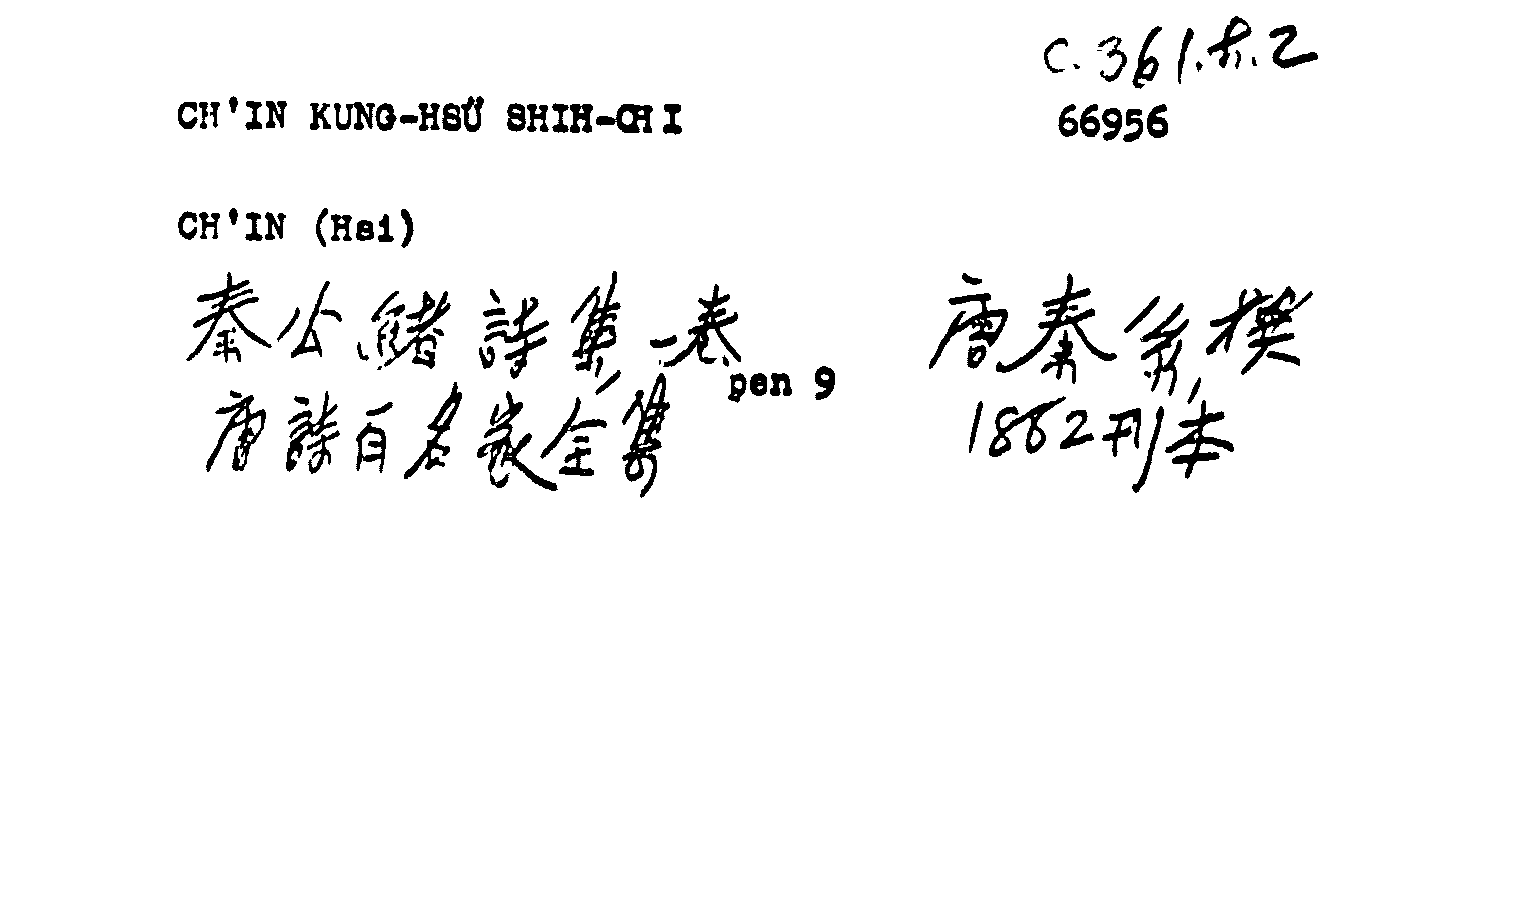 C. 361. 2
CH'IN KUNG-HSÜ SHIH-CHI 66956
CH'IN (Hsi)
秦公緒詩集一卷 唐秦系撰
pen 9
唐詩百名家全集 1862刊本